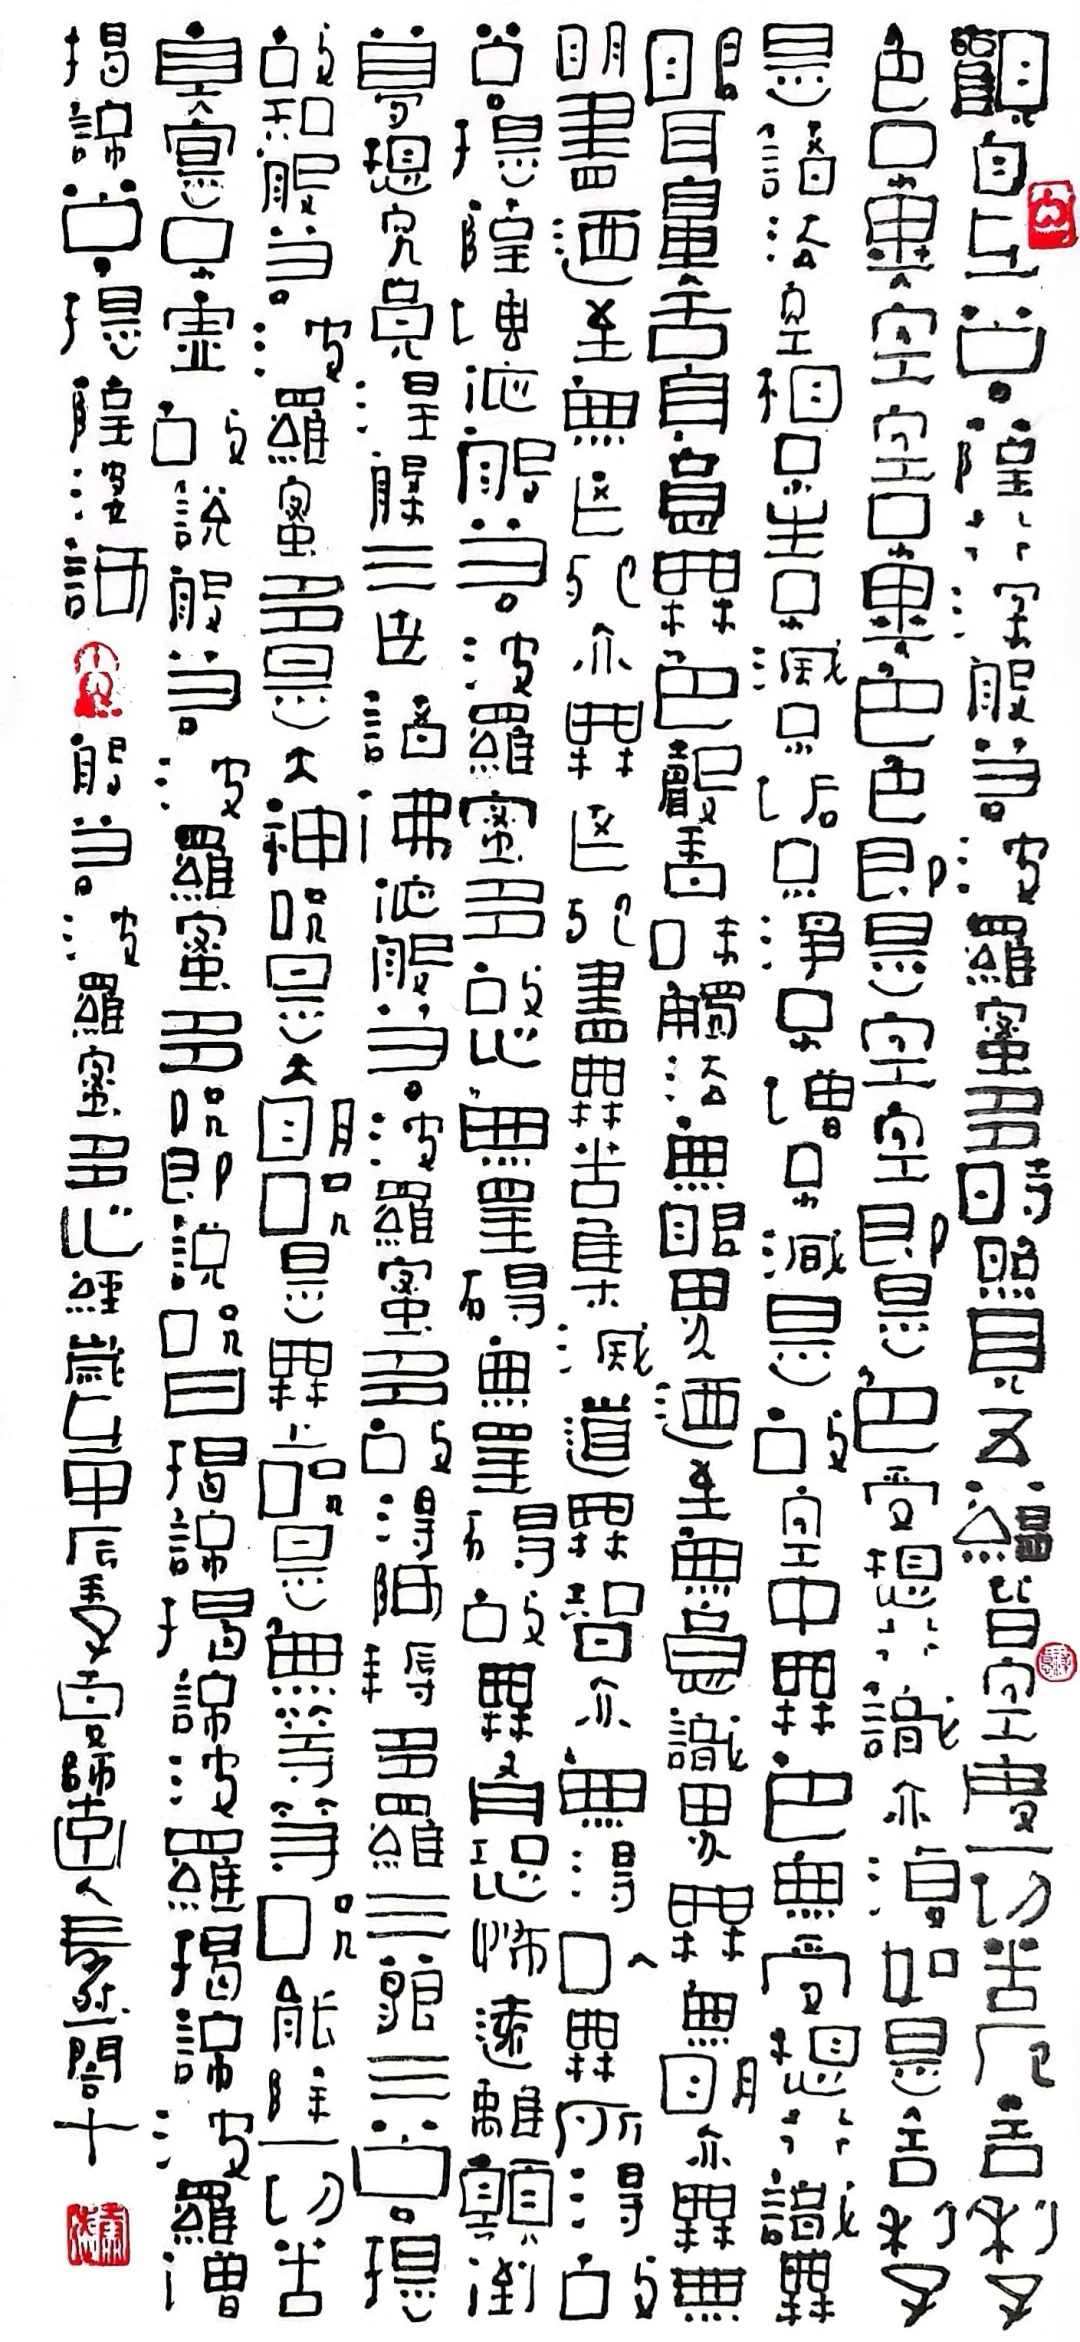 觀自在菩薩行深般若波羅蜜多時照見五蘊皆空度一切苦厄舍利子
色不異空空不異色色即是空空即是色受想行識亦復如是舍利子
是諸法空相不生不滅不垢不淨不增不減是故空中無色無受想行識無
眼耳鼻舌身意無色聲香味觸法無眼界迺至無意識界無無明亦無無
明盡迺至無老死亦無老死盡無苦集滅道無智亦無得以無所得故
菩提薩埵依般若波羅蜜多故心無罣礙無罣礙故無有恐怖遠離顛倒
夢想究竟涅槃三世諸佛依般若波羅蜜多故得阿耨多羅三藐三菩提
故知般若波羅蜜多是大神咒是大明咒是無上咒是無等等咒能除一切苦
真實不虛故說般若波羅蜜多咒即說咒曰揭諦揭諦波羅揭諦波羅僧
揭諦菩提薩婆訶 般若波羅蜜多心經歲在甲辰季夏